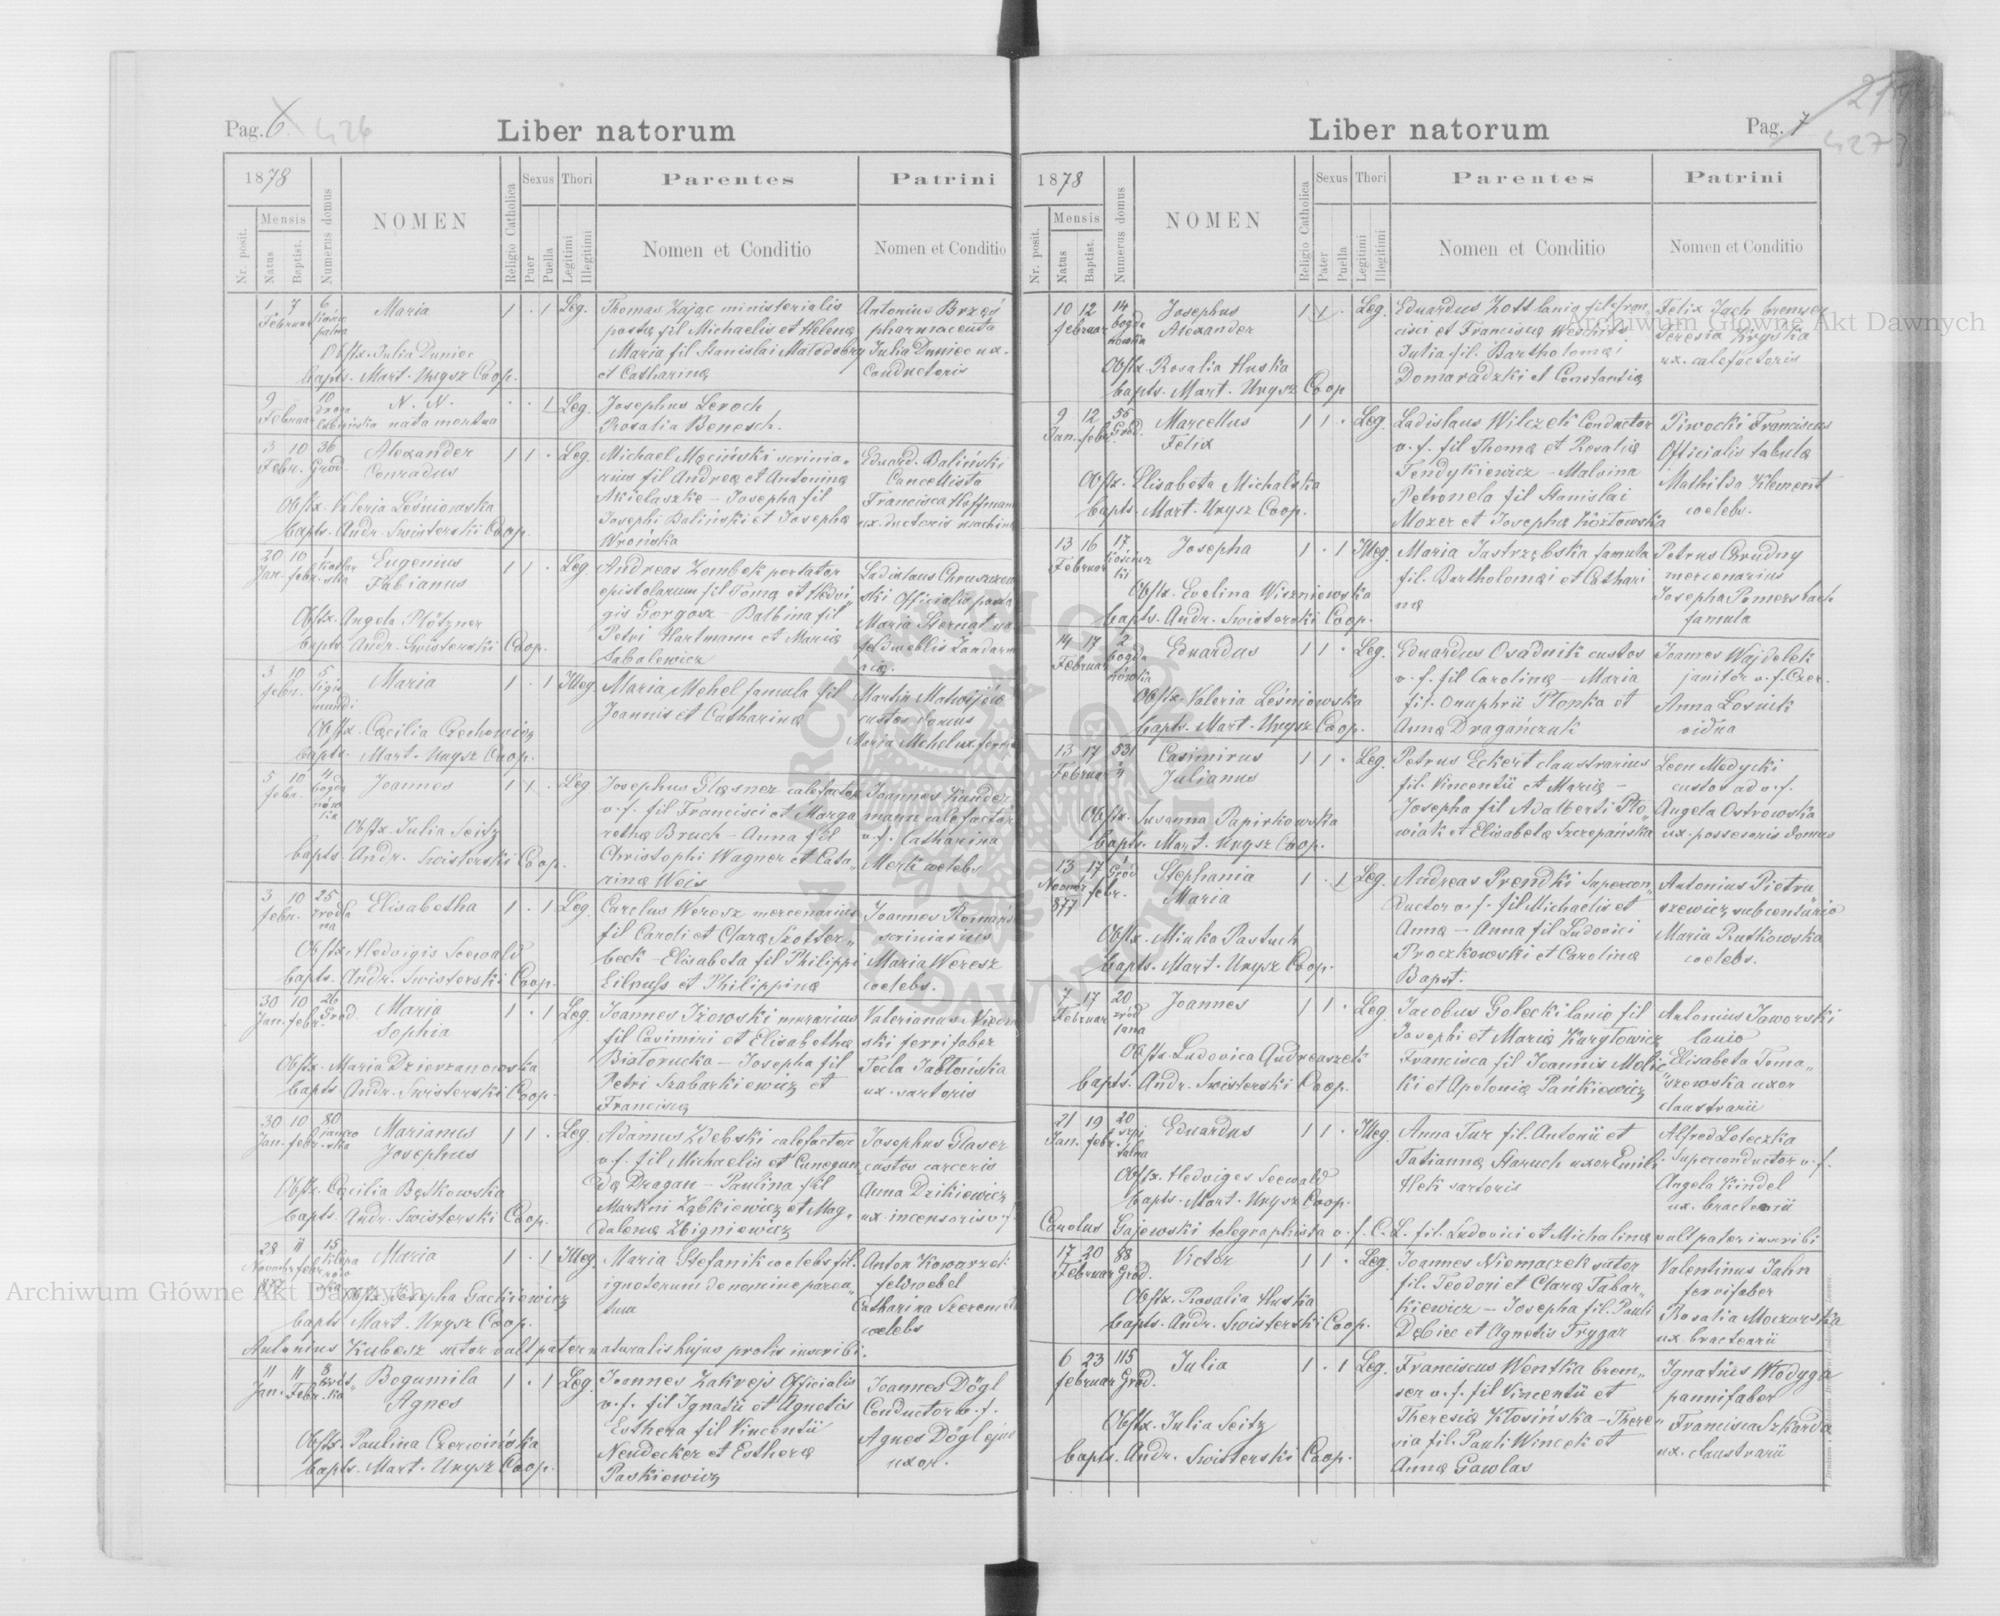 Pag. 6. 426
Liber natorum
1878
Mensis
Nr. posit.
Natus
Baptist.
Numerus domus
NOMEN
Religio Catholica
Sexus
Puer
Puella
Thori
Legitimi
Illegitimi
Parentes
Nomen et Conditio
Patrini
Nomen et Conditio
1 7 6 Maria 1 . 1 Leg. Thomas Zając ministerialis Antonius Brzęś
Februar posta fil Michaelis et Helena pharmaceuta
Obstx. Julia Duniec Maria fil Stanislai Małodobry Julia Duniec ux.
bapts. Mart. Unysz Coop. et Catharina Conductoris
9 10 N. N. . . 1 Leg. Josephus Leroch
Februar nata mortua Rosalia Benesch.
3 10 36 Alexander 1 1 . Leg. Michael Męciński scrinia„ Eduard. Baliński
Febr. Grod. Conradus rius fil Andrea et Antonina Cancellista
Obstx. Valeria Leśniowska Josepha fil Francisca Hoffmann
bapts. Andr. Swisterski Coop. Josephi Baliński et Josepha ux ductoris
Wrońska
20 10 1 Eugenius 1 1 . Leg. Andreas Zombek portator Ladislaus
Jan. febr. Fabianus epistolarum fil Toma et Hedvi„ ski Officialis posta
Obstx. Angela Plötzner gis Gorgosz – Balbina fil Maria
bapts. Andr. Swisterski Coop. Petri Hartmann et Maria
Sabalewicz
3 10 5 Maria 1 . 1 Illeg. Maria Mehel famula fil Martin
febr. Joannis et Catharina custos domus
Obstx. Cæcilia Czechowicz Maria Mehel ux
bapts. Mart. Unysz Coop.
5 10 4 Joannes 1 1 . Leg. Josephus Glasner calefactor Joannes
febr. v. f. fil Francisci et Marga mann calefactor
Obstx. Julia Seitz retha Bruch – Anna fil v. f. Catharina
bapts. Andr. Swisterski Coop. Christophi Wagner et Cata„ Merk coelebs
rina Weis
3 10 25 Elisabetha 1 . 1 Leg. Carolus Weresz mercenarius Joannes
febr. fil Caroli et Clara Szotter„ scriniarius
Obstx. Hedvigis Seewald beck – Elisabeta fil Philippi Maria Weresz
bapts. Andr. Swisterski Coop. et Philippina coelebs.
30 10 26 Maria 1 . 1 Leg. Joannes murarius Valerianus
Jan. febr. Grod. Sophia fil Casimiri et Elisabetha ski ferrifaber
Obstx. Maria Dzierzanowska Białorucka – Josepha fil Tecla Jabłońska
bapts. Andr. Swisterski Coop. Petri Szabarkiewicz et ux. sartoris
Francisca
30 10 80 Marianus 1 1 . Leg. Adamus Zdebski calefactor Josephus Glaser
Jan. febr. Josephus v. f. fil Michaelis et Cunegun„ custos carceris
Obstx. Cæcilia Bęskowska da Dragan – Paulina fil Anna Dzikiewicz
bapts. Andr. Swisterski Coop. Ząbkiewicz et Mag„ ux. incensoris v. f.
dalena Zbigniewicz
28 11 15 Maria 1 . 1 Illeg. Maria Stefanik coelebs fil. Anton
Novembr febr. ignotorum de nomine paren„ feldwebel
877 Obstx. Josepha Gackiewicz tum Catharina
bapts. Mart. Unysz Coop. coelebs
Antonius Kubesz sutor vult pater naturalis hujus prolis inscribi.
11 11 8 Bogumila 1 . 1 Leg. Joannes Zakrejs Officialis Joannes Dögl
Jan. Febr. Agnes v. f. fil Ignatii et Agnetis Conductor v. f.
Obstx. Paulina Czerwińska Esthera fil Vincentii Agnes Dögl ejus
bapts. Mart. Unysz Coop. Neudecker et Esthera uxor.
Paskiewicz
Pag. 7
427
Liber natorum
1878
Mensis
Nr. posit.
Natus
Baptist.
Numerus domus
NOMEN
Religio Catholica
Sexus
Pater
Puella
Thori
Legitimi
Illegitimi
Parentes
Nomen et Conditio
Patrini
Nomen et Conditio
10 12 14 Josephus 1 1 . Leg. Eduardus Zott lanio fil Fran„ Felix Jach bremser
Februar Alexander cisci et Francisca Teresia Kryska
Obstx. Rosalia Huska Julia fil. Bartholomæi ux. calefactoris
bapts. Mart. Unysz Coop Domaradzki et Constantia
9 12 55 Marcellus 1 1 . Leg. Ladislaus Wilczek Conductor Piwocki Franciscus
Jan. febr. Grod. Felix v. f. fil Thoma et Rosalia Officialis tabula
Obstx. Elisabeta Michalska Fendykiewicz – Malvina Mathilda Klement
bapts. Mart. Unysz Coop. Petronela fil Stanislai coelebs.
Mozer et Josepha Kozłowska
13 16 17 Josepha 1 . 1 Illeg. Maria Jastrzębska famula Petrus Grudny
Februar fil. Bartholomæi et Cathari mercenarius
Obstx. Evelina Wiszniewska na Josepha Pomersbach
bapts. Andr. Swisterski Coop. famula
14 17 2 Eduardus 1 1 . Leg. Eduardus Osadnik custos Joannes Wajdelek
Februar v. f. fil Carolina – Maria janitor v. f. Czer.
Obstx. Valeria Leśniowska fil. Onuphrii Płonka et Anna Łosiuk
bapts. Mart. Unysz Coop. Anna Dragańczuk vidua
13 17 531 Casimirus 1 1 . Leg. Petrus Eckert claustrarius Leon Medycki
Februar Julianus fil. Vincentii et Maria – custos ad v. f.
Obstx. Susanna Papirkowska Josepha fil Adalberti Pto„ Angela Ostrowska
bapts. Mart. Unysz Coop. wiak et Elisabeta Szczepańska ux. possesoris domus
13 17 1 Stephania 1 . 1 Leg. Andreas Prendki Supercon„ Antonius Pietru
Novembr febr. Grod Maria ductor v. f. fil Michaelis et szewicz subcenturio
877 Obstx. Minka Pastuch Anna – Anna fil Ludovici Maria Rutkowska
bapts. Mart. Unysz Coop. Proczkowski et Carolina coelebs.
Bapst.
7 17 20 Joannes 1 1 . Leg. Jacobus Golecki lanio fil Antonius Jaworski
Februar Josephi et Maria Kuryłowicz lanio
Obstx. Ludovica Andreaszek Francisca fil Joannis Molic„ Elisabeta Toma„
bapts. Andr. Swisterski Coop. ki et Apolonia Pańkiewicz szewska uxor
claustrarii
21 19 20 Eduardus 1 1 . Illeg. Anna Tur fil. Antonii et Alfred Leteczka
Jan. febr. Tatianna Staruch uxor Emili Superconductor v. f.
Obstx. Hedviges Seewald Hek sartoris Angela Kindel
bapts. Mart. Unysz Coop. ux. bractearii
Carolus Gajewski telegraphista v. f. C. L. fil. Ludovici et Michalina vult pater inscribi
17 20 88 Victor 1 1 . Leg. Joannes Niemaczek sutor Valentinus Jahn
Februar Grod. fil. Teodori et Clara Tabar„ ferrifaber
Obstx. Rosalia Huska kiewicz – Josepha fil. Pauli Rosalia Moczorska
bapts. Andr. Swisterski Coop. Dębiec et Agnetis Frygar ux. bractearii
6 23 115 Julia 1 . 1 Leg. Franciscus Wentka brem„ Ignatius Włodyga
Februar Grod. ser v. f. fil Vincentii et pannifaber
Obstx. Julia Seitz Theresia Kłosińska – There„ Francisca Szkarda
bapts. Andr. Swisterski Coop. sia fil. Pauli Wincek et ux. claustrarii
Anna Gawlas
Archiwum Główne Akt Dawnych
Archiwum Główne Akt Dawnych
ARCHIWUM GŁÓWNE AKT DAWNYCH